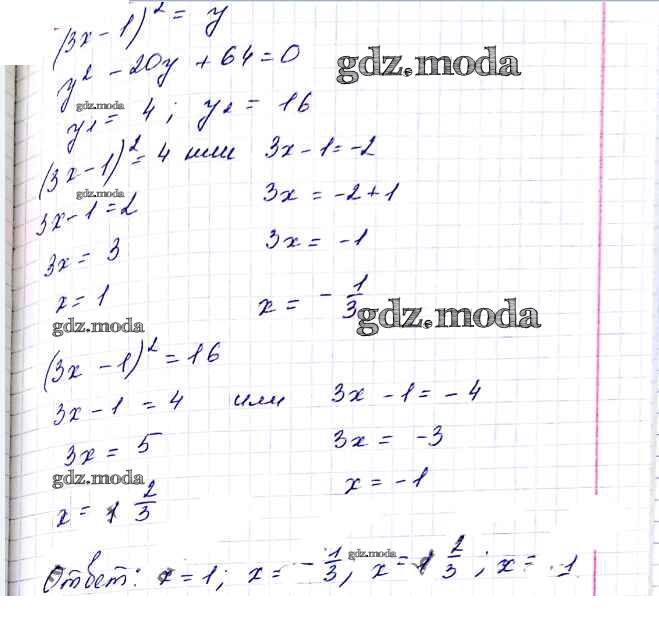 (3x-1)² = y
y² - 20y + 64 = 0
gdz.moda
gdz.moda
y₁ = 4; y₂ = 16
(3x-1)² = 4 или 3x-1=-2
gdz.moda
3x-1=2 3x = -2+1
3x = 3 3x = -1
x = 1 x = -1/3
gdz.moda
gdz.moda
(3x-1)² = 16
3x-1 = 4 или 3x-1 = -4
3x = 5 3x = -3
gdz.moda
x = 1 2/3 x = -1
gdz.moda
Ответ: x = 1; x = -1/3, x = 1 2/3; x = -1